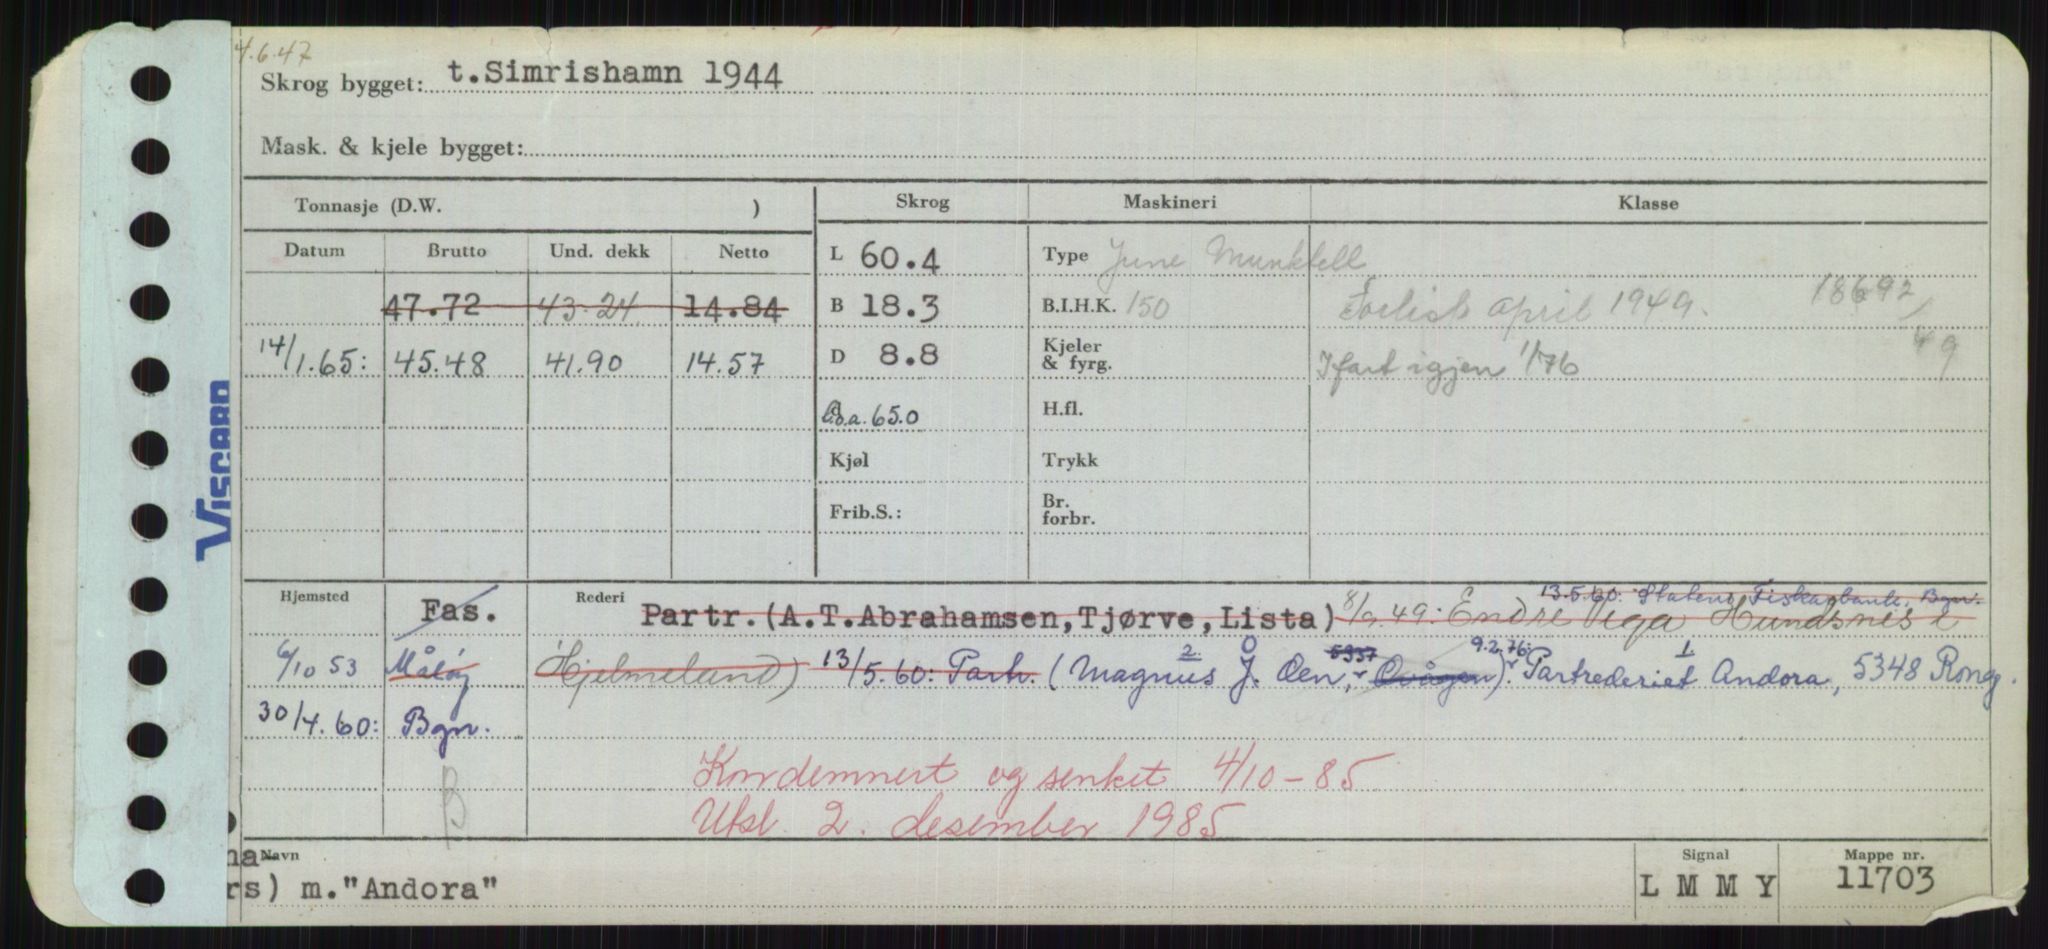 4.6.47
Skrog bygget: t.Simrishamn 1944
Mask. & kjele bygget:
Tonnasje (D.W. )
Skrog
Maskineri
Klasse
Datum Brutto Und. dekk Netto
47.72 43.24 14.84
14/1.65: 45.48 41.90 14.57
L 60.4
B 18.3
D 8.8
l.o.a. 65.0
Kjøl
Frib.S.:
Type June Munktell
B.I.H.K. 150
Kjeler
& fyrg.
H.fl.
Trykk
Br.
forbr.
april 1949. 18692/
49
I fart igjen 1/76
VISCARD
Hjemsted Fas.
6/10 53 Måløy
30/4.60: Bgn.
B
Rederi Partr.(A.T.Abrahamsen,Tjørve,Lista) 8/9.49: Endre Vega Hundsnes i
13.5.60: Statens Fiskarbank, Bgn.
Hjelmeland) 13/5.60: Partr. (Magnus J. Oen, 5337 Ovågen). 9.2.76: Partrederiet Andora, 5348 Rong.
2. 0 1.
Kondemnert og senket 4/10-85
Utsl. 2. desember 1985
na
Navn
rs) m."Andora"
Signal
L M M Y
Mappe nr.
11703